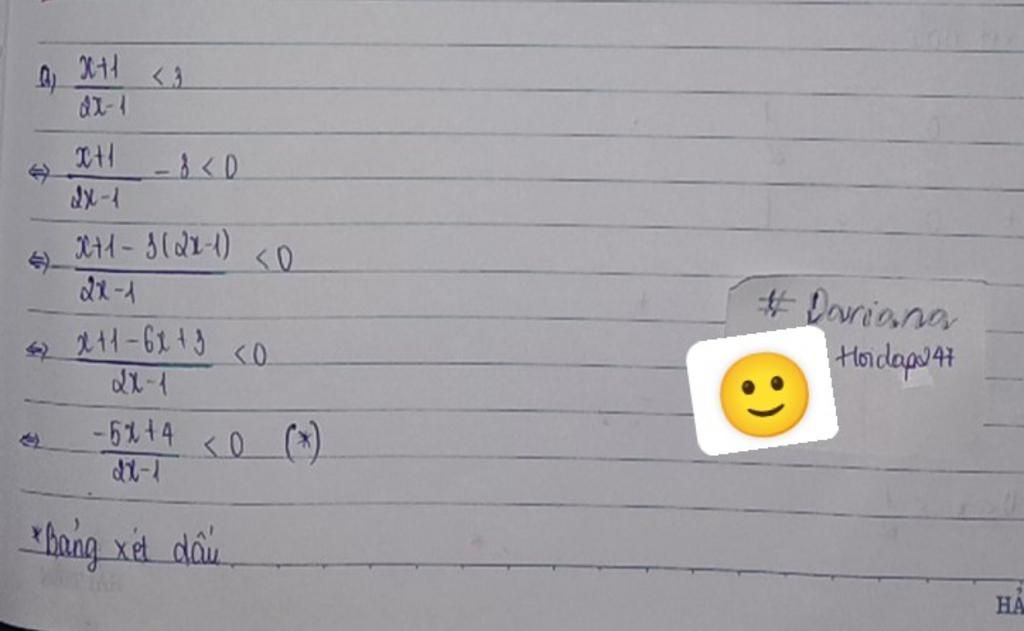 a) x+1/2x-1 < 3
⇔ x+1/2x-1 - 3 < 0
⇔ x+1-3(2x-1)/2x-1 < 0
⇔ x+1-6x+3/2x-1 < 0
⇔ -5x+4/2x-1 < 0 (*)
*Bảng xét dấu
# Dariana
Hoidap247
HẢ